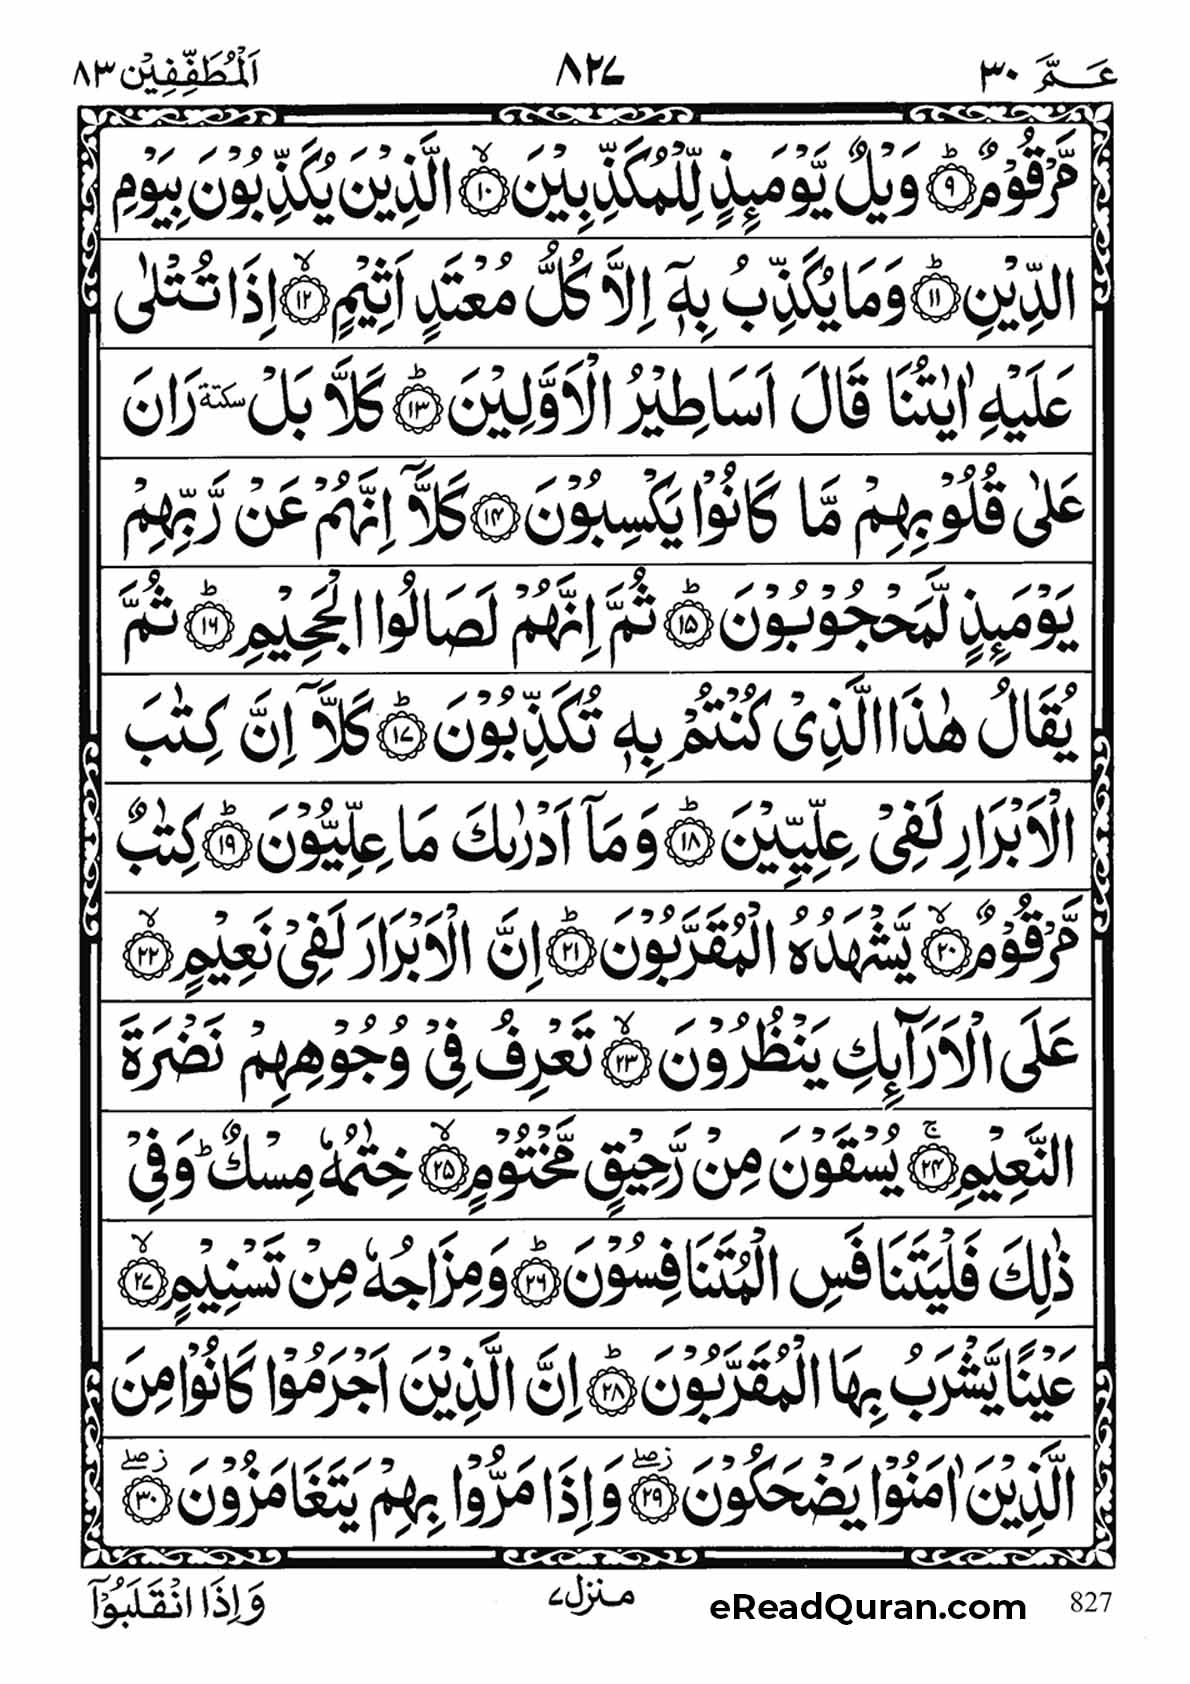 عَـمَّ ٣٠
٨٢٧
اَلْمُطَفِّفِيْن ٨٣
مَّرْقُوْمٌؕ ۹ وَيْلٌ يَّوْمَىِٕذٍ لِّلْمُكَذِّبِيْنَۙ ۱۰ الَّذِيْنَ يُكَذِّبُوْنَ بِيَوْمِ
الدِّيْنِؕ ۱۱ وَمَا يُكَذِّبُ بِهٖۤ اِلَّا كُلُّ مُعْتَدٍ اَثِيْمٍۙ ۱۲ اِذَا تُتْلٰى
عَلَيْهِ اٰيٰتُنَا قَالَ اَسَاطِيْرُ الْاَوَّلِيْنَؕ ۱۳ كَلَّا بَلْ سكتة رَانَ
عَلٰى قُلُوْبِهِمْ مَّا كَانُوْا يَكْسِبُوْنَ ۱۴ كَلَّاۤ اِنَّهُمْ عَنْ رَّبِّهِمْ
يَوْمَىِٕذٍ لَّمَحْجُوْبُوْنَؕ ۱۵ ثُمَّ اِنَّهُمْ لَصَالُوا الْجَحِيْمِؕ ۱۶ ثُمَّ
يُقَالُ هٰذَا الَّذِىْ كُنْتُمْ بِهٖ تُكَذِّبُوْنَؕ ۱۷ كَلَّاۤ اِنَّ كِتٰبَ
الْاَبْرَارِ لَفِىْ عِلِّيِّيْنَؕ ۱۸ وَمَاۤ اَدْرٰىكَ مَا عِلِّيُّوْنَؕ ۱۹ كِتٰبٌ
مَّرْقُوْمٌۙ ۲۰ يَّشْهَدُهُ الْمُقَرَّبُوْنَؕ ۲۱ اِنَّ الْاَبْرَارَ لَفِىْ نَعِيْمٍۙ ۲۲
عَلَى الْاَرَآىِٕكِ يَنْظُرُوْنَۙ ۲۳ تَعْرِفُ فِىْ وُجُوْهِهِمْ نَضْرَةَ
النَّعِيْمِۚ ۲۴ يُسْقَوْنَ مِنْ رَّحِيْقٍ مَّخْتُوْمٍۙ ۲۵ خِتٰمُهٗ مِسْكٌؕ وَفِىْ
ذٰلِكَ فَلْيَتَنَافَسِ الْمُتَنَافِسُوْنَؕ ۲۶ وَمِزَاجُهٗ مِنْ تَسْنِيْمٍۙ ۲۷
عَيْنًا يَّشْرَبُ بِهَا الْمُقَرَّبُوْنَؕ ۲۸ اِنَّ الَّذِيْنَ اَجْرَمُوْا كَانُوْا مِنَ
الَّذِيْنَ اٰمَنُوْا يَضْحَكُوْنَ زۖ ۲۹ وَاِذَا مَرُّوْا بِهِمْ يَتَغَامَزُوْنَ زۖ ۳۰
وَاِذَا انْقَلَبُوْۤا
منزل ٧
eReadQuran.com
827